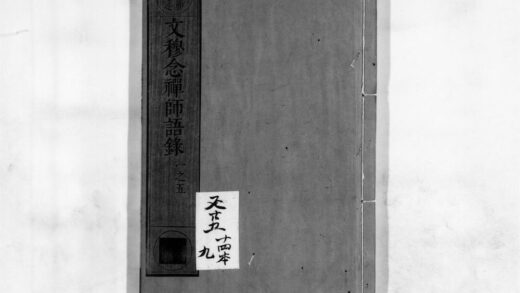 文穆念禪師語錄 一之五
又廿五
十四本
九